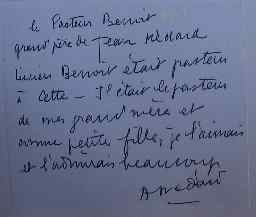 le Pasteur Benoit
grand'père de Jean Médard
Lucien Benoit était pasteur
à Cette - Il était le pasteur
de mes grand'mère et
comme petite fille, je l'aimais
et l'admirais beaucoup
A Médard